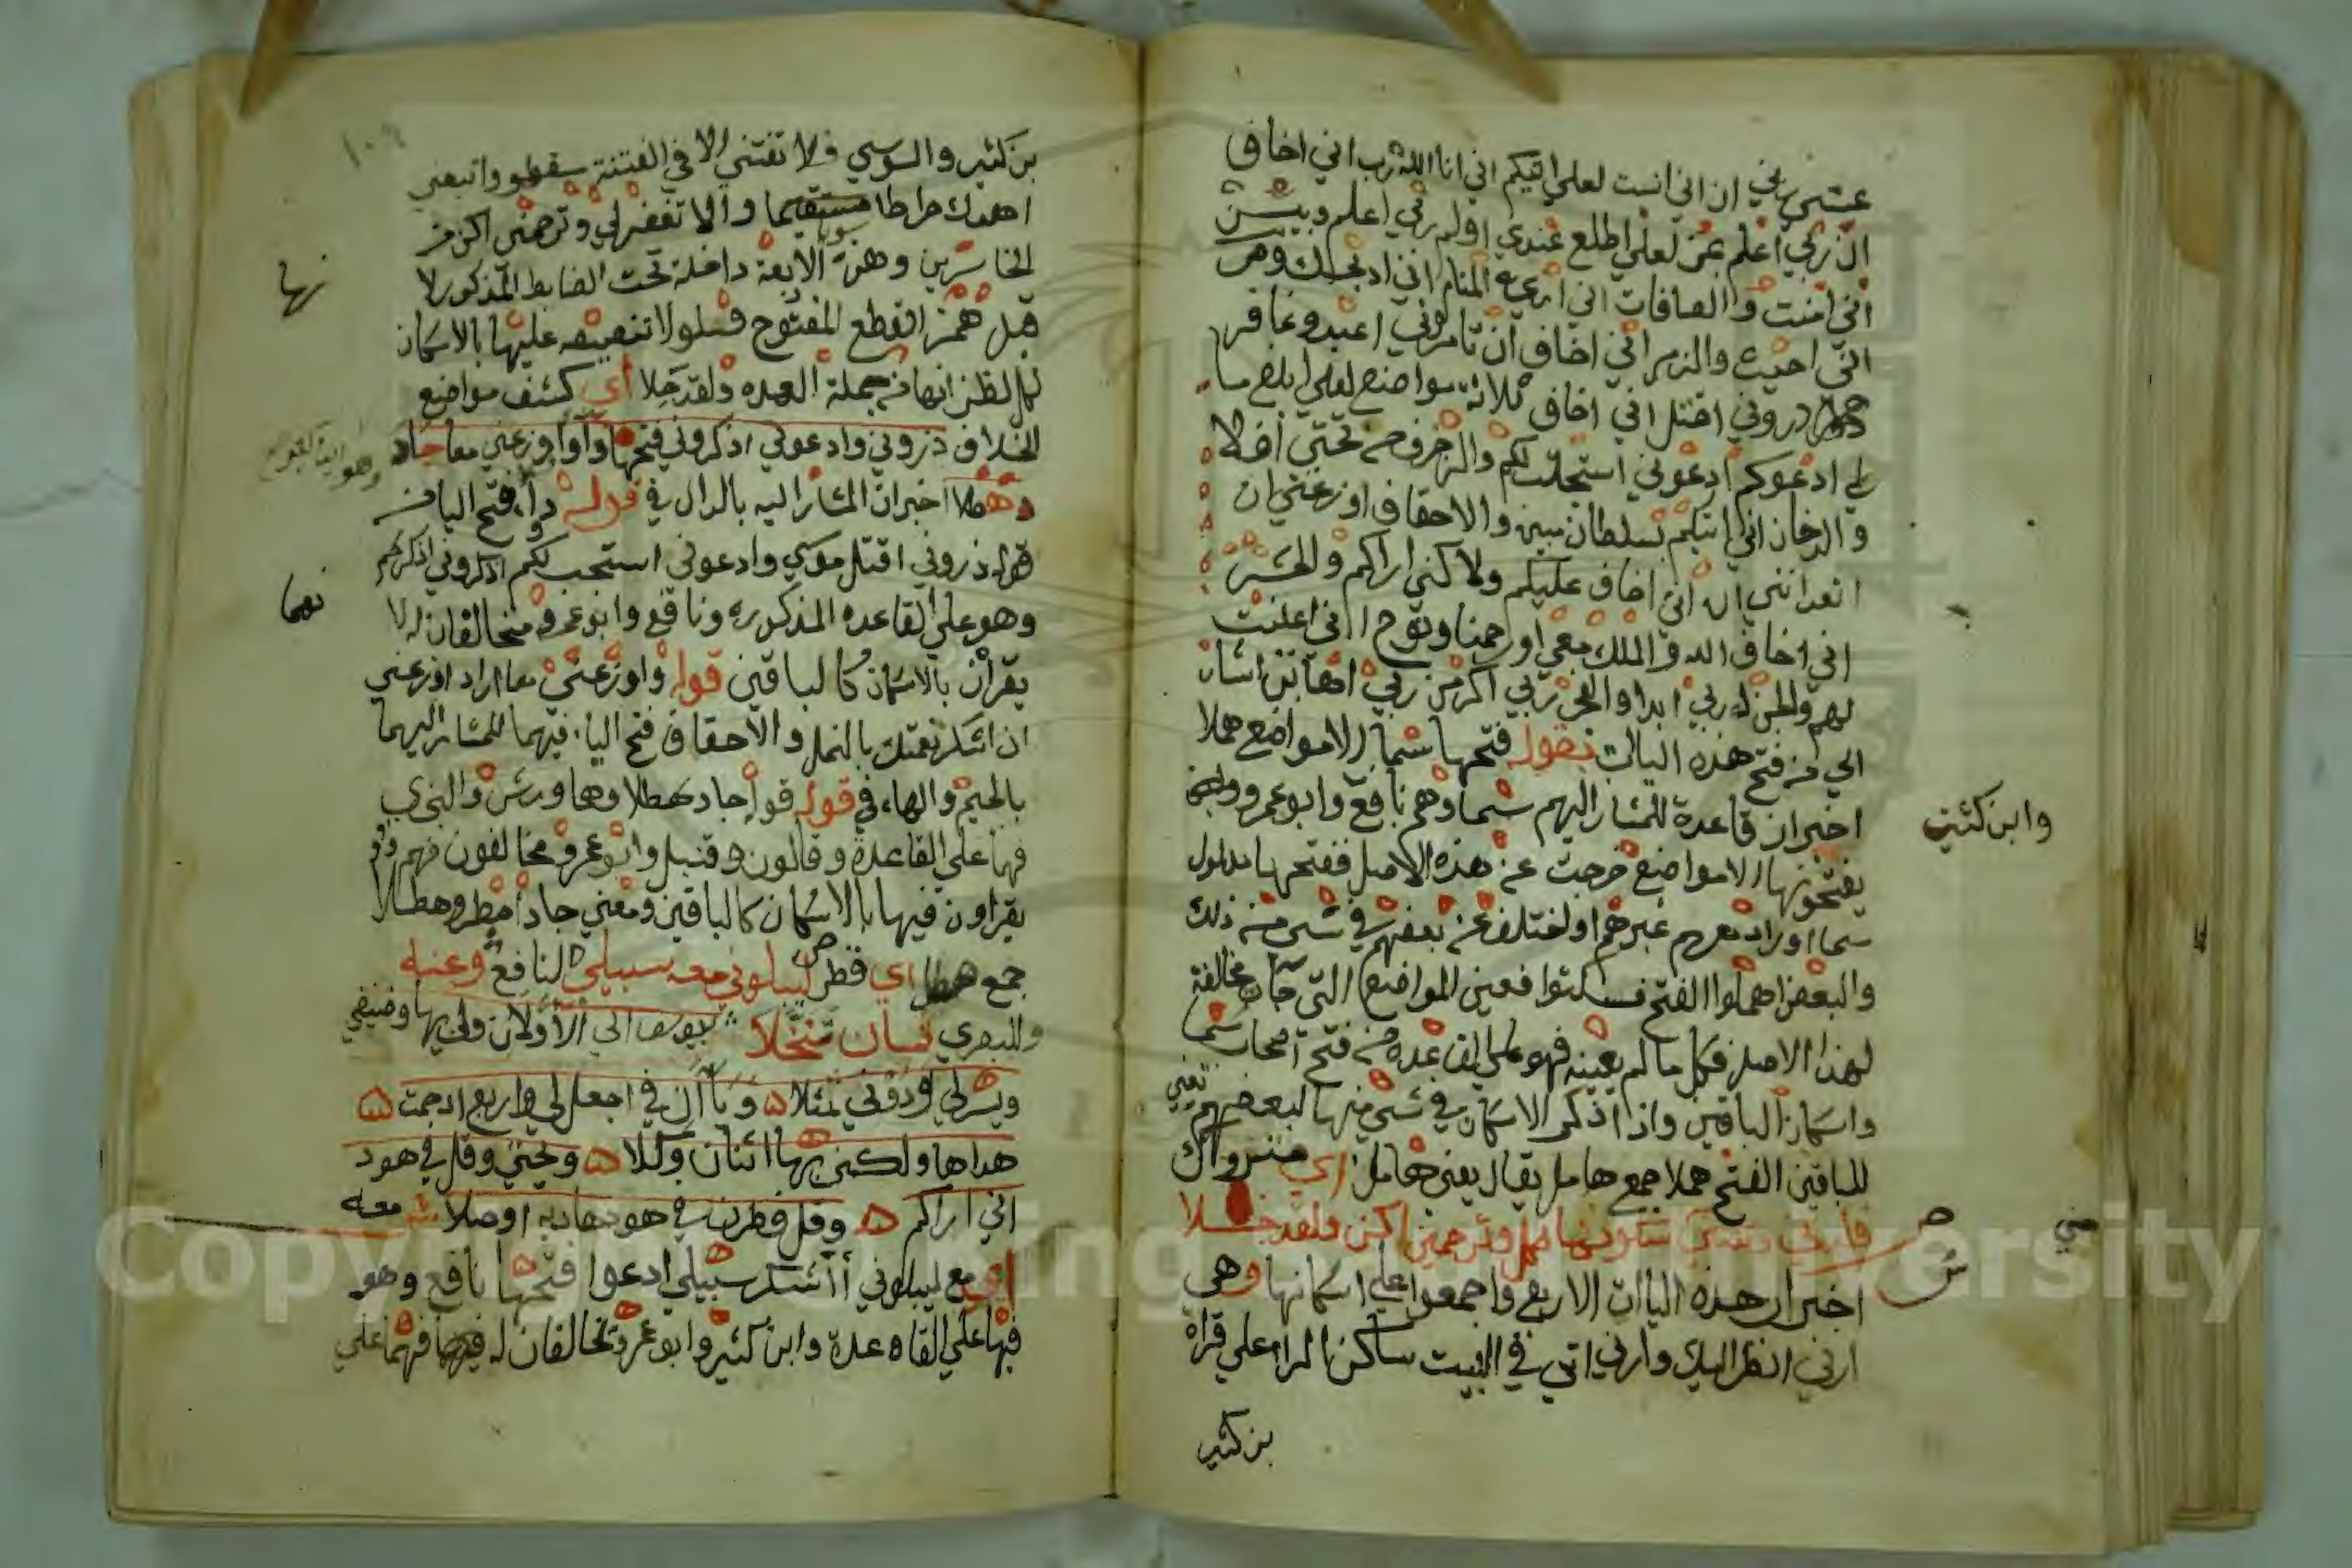 عشر ياتي ان اني انست لعلي اتيكم اني انا الله رب اني اخاف
ان ربي اعلم بمن لعلي اطلع عندي اولم ربي اعلم وبيس
اني امنت والصافات اني اري في المنام اني اذبحك وص
اني احببت والزمر اني اخاف ان تامروني اعبد وغافر
ذروني اقتل اني اخاف ثلاثة مواضع لعلي ابلغ ما
لي ادعوكم ادعوني استجب لكم والزخرف من تحتي افلا
والدخان اني اتيكم بسلطان مبين والاحقاف اوزعني ان
اتعدانني ان اني اخاف عليكم ولاكني اراكم والحشر
اني اخاف الله والملك معي او رحمنا ونوح اني اعلنت
لهم والجن له ربي امدا والفجر ربي اكرمن ربي اهانن اشار
الي من فتح هذه اليات بقوله فتحها سما الا مواضع هملا
اخبر ان قاعدة المشار اليهم بسما وهم نافع وابو عمرو
وابن كثير
يفتحونها الا مواضع خرجت عن هذه الاصل ففتحها مدلول
سما او زاد معهم غيرهم او اختلف عن بعضهم في شي من ذلك
والبعض اهملوا الفتح فسكتوا فعين المواضع التي جات مخالفة
لهذا الاصل فكل ما لم يعينه فهو علي القاعدة من فتح اصحاب سما
واسكان الباقين واذا ذكر الاسكان في شي منها لبعضهم تعين
للباقين الفتح هملا جمع هامل يقال بعير هامل اي متروك
فارني وتفتني سكونها لكل وترحمني اكن ولقد جلا
اخبر ان هذه الياات الاربع واجمعوا علي اسكانها وهي
ارني انظر اليك وارني اتي في البيت ساكن الراء علي قراة
بن كثير
بن كثير والسوسي ولا تفتني الا في الفتنة سقطوا واتبعني
اهدك صراطا سويا والا تغفر لي وترحمني اكن من
الخاسرين وهذه الاربعة داخلة تحت الضابط المذكور لا
نها
قبل همز القطع المفتوح فلولا تنصيصه عليها بالاسكان
لكل لظن انها من جملة العده ولقد جلا اي كشف مواضع
الخلاف ذروني وادعوني اذكروني فتحها دواء واوزعني معا جاد
هطلا اخبر ان المشار اليه بالدال في قوله دواء فتح اليا من
قوله ذروني اقتل موسي وادعوني استجب لكم اذكروني اذكركم
وهو علي القاعده المذكوره ونافع وابو عمرو مخالفان له لا
يقران بالاسكان كالباقين قوله واوزعني معا اراد اوزعني
ان اشكر نعمتك بالنمل والاحقاف فتح اليا فيهما للمشار اليهما
بالجيم والها في قوله جاد هطلا وهما ورش والبزي
فهما علي القاعدة وقالون وقنبل وابو عمرو مخالفون فهم
يقراون فيها بالاسكان كالباقين ومعني جاد امطر وهطلا
جمع هطل اي قطر ليبلوني معه سبيلي لنافع وعنه
وللبصري ثمان تنخلا بيوسف اني الاولان ولي بها وضيفي
ويسر لي ودوني تمثلا وياان في اجعل لي واربع اذ حمت
هداها ولكني بها اثنان وكلا وتحتي وقل في هود
اني اراكم وقل فطرن في هود هاديه اوصلا معه
اي مع ليبلوني أاشكر سبيلي ادعوا فتحها نافع وهو
فيها علي القاعدة وابن كثير وابو عمرو مخالفان له فهما علي